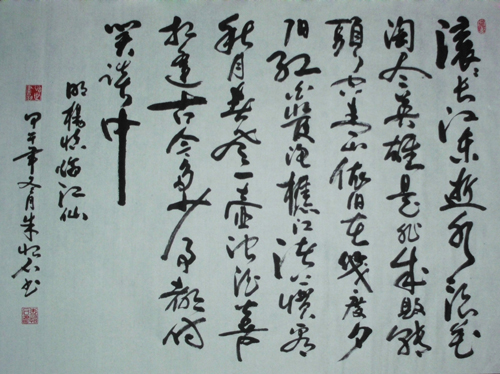 滚滚长江东逝水浪花
淘尽英雄是非成败转
頭空青山依旧在幾度夕
阳红白髮渔樵江渚上惯看
秋月春风一壶浊酒喜
相逢古今多少事都付
笑谈中
明杨慎临江仙
甲午年冬月朱书